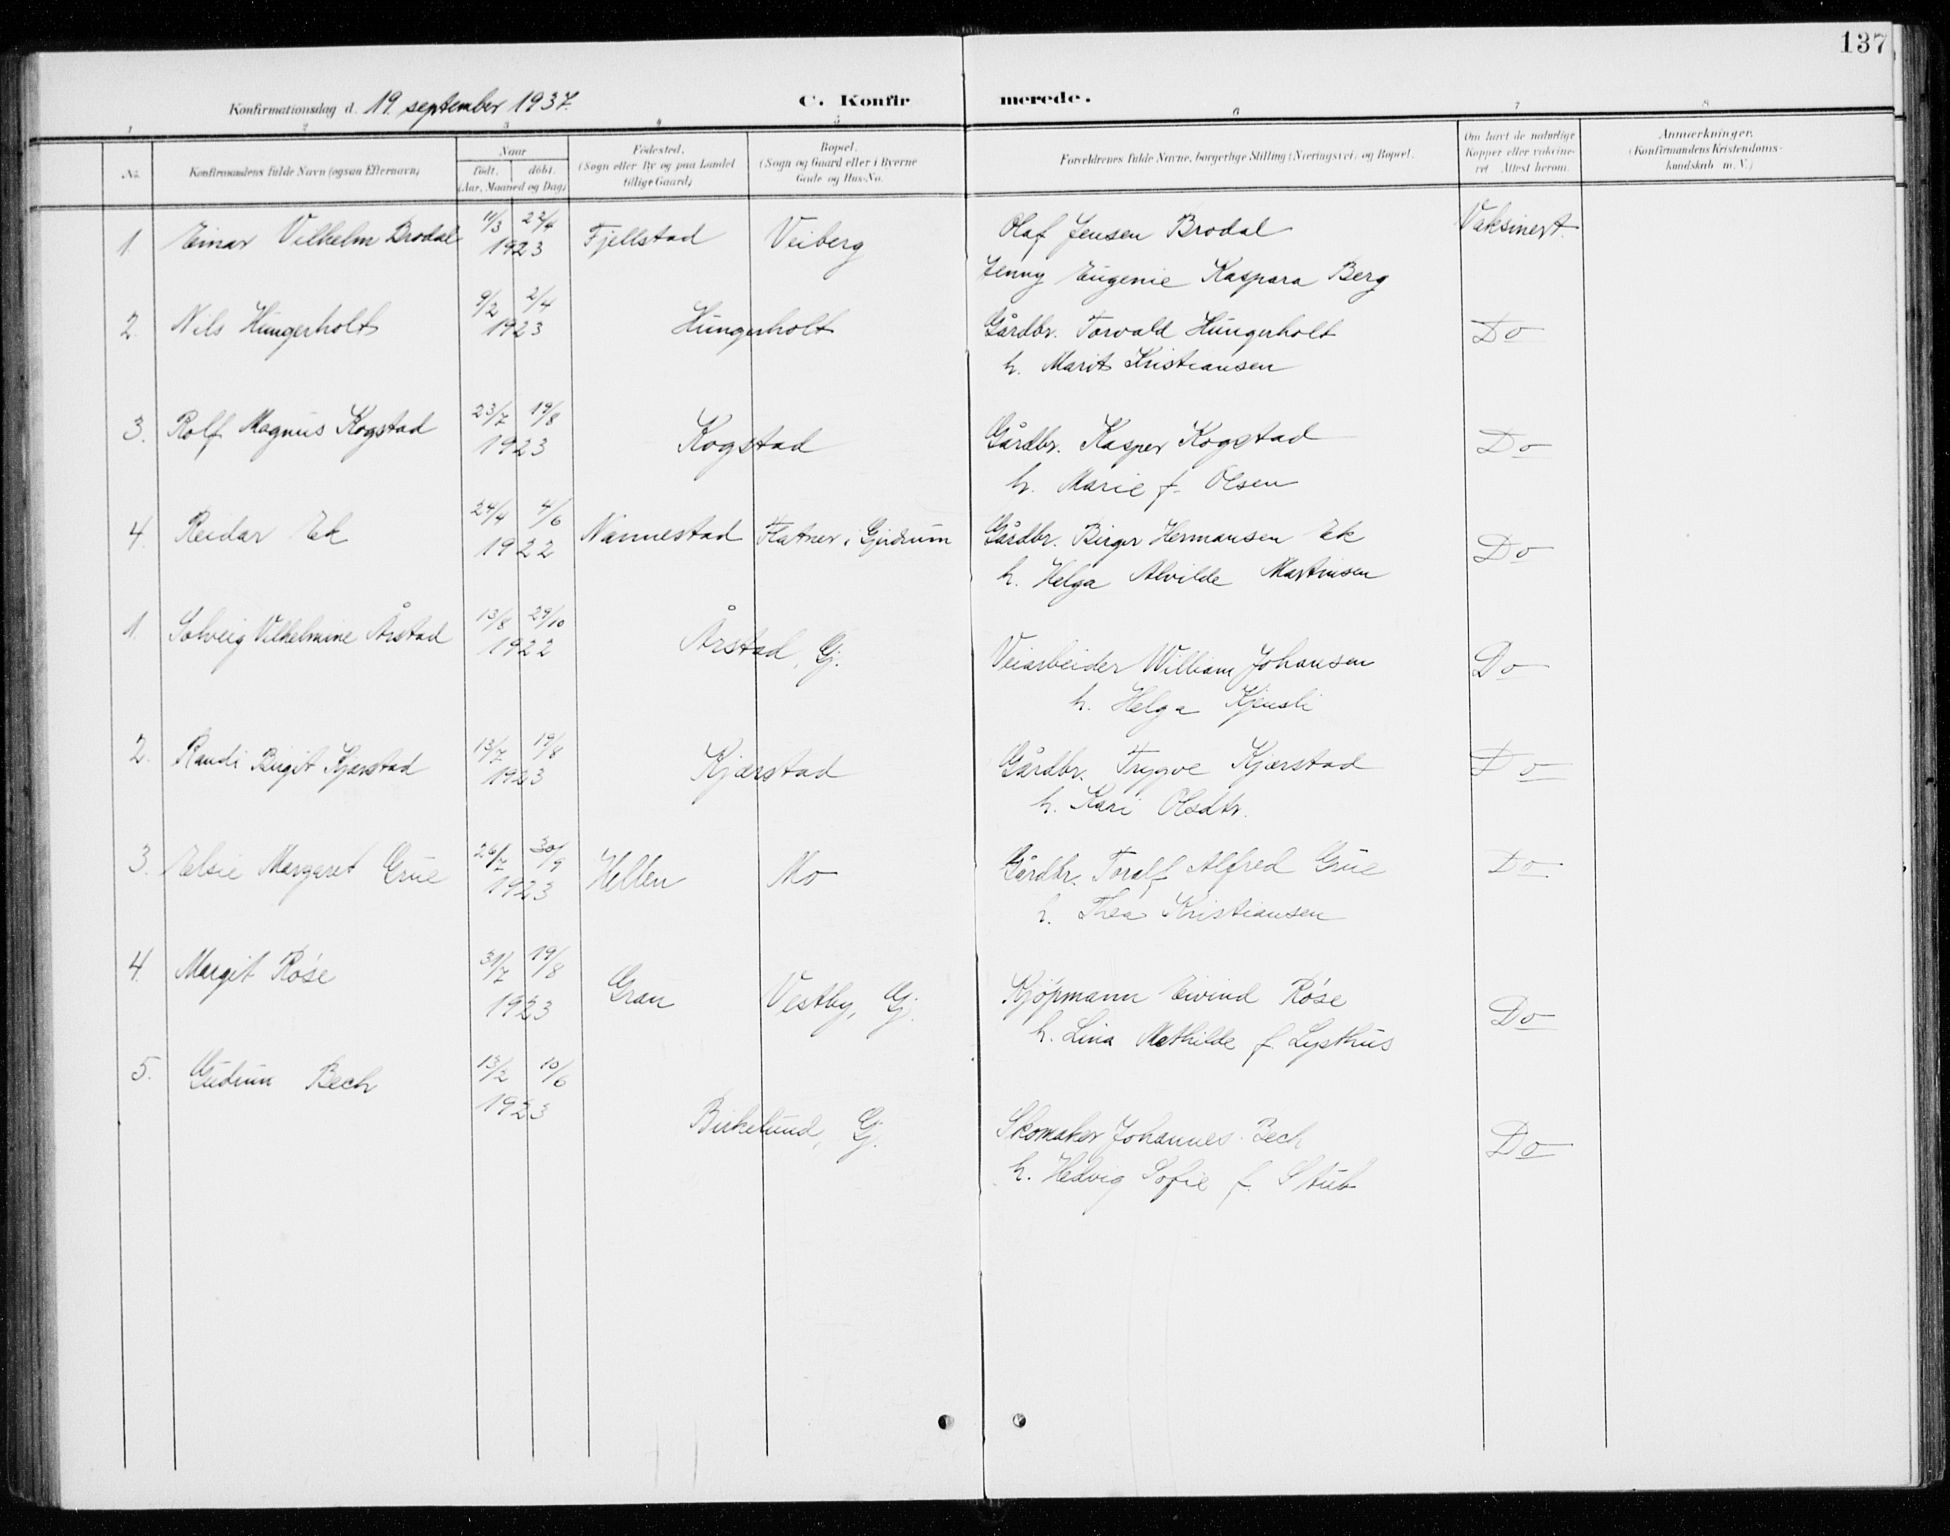 137
Konfirmationsdag d. 19. september 1937.
C. Konfirmerede.
1 2 3 4 5 6 7 8
No.
Konfirmandens fulde Navn (ogsaa Efternavn)
Naar
født. döbt.
(Aar, Maaned og Dag)
Födested.
(Sogn eller By og paa Landet
tillige Gaard)
Bopæl.
(Sogn og Gaard eller i Byerne
Gade og Hus-No.
Forældrenes fulde Navne, borgerlige Stilling (Næringsvei) og Bopæl.
Om havt de naturlige
Kopper eller vakcine-
ret. Attest herom.
Anmærkninger.
(Konfirmandens Kristendoms-
kundskab m. V.)
1. Einar Vilhelm Brodal 11/3 22/4 Fjellstad Veiberg Olaf Jensen Brodal Vaksinert.
1923
Jenny Eugenie Kaspara Berg
2. Nils Hungerholt 9/2 2/4 Hungerholt Gårdbr. Torvald Hungerholt Do
1923
h. Marit Kristiansen
3. Rolf Magnus Kogstad 23/7 19/8 Kogstad Gårdbr. Kasper Kogstad Do
1923
h. Marie f. Olsen
4. Reidar Ek 24/4 4/6 Nannestad Flatner i Gjerdrum Gårdbr. Birger Hermansen Ek Do
1922
h. Helga Alvilde Martinsen
1. Solveig Vilhelmine Årstad 13/8 29/10 Årstad, Gj. Veiarbeider William Johansen Do
1922
h. Helga Kjensli
2. Randi Birgit Kjærstad 13/7 19/8 Kjærstad Gårdbr. Trygve Kjærstad Do
1923
h. Kari Olsdtr.
3. Elsie Margaret Grue 26/7 30/9 Hellen Mo Gårdbr. Toralf Alfred Grue Do
1923
h. Thea Kristiansen
4. Margit Røise 31/7 19/8 Gran Vestby, Gj. Kjøpmann Eivind Røise Do
1923
h. Lina Mathilde f. Lysthus
5. Gudrun Bech 13/2 10/6 Birkelund, Gj. Skomaker Johannes Bech Do
1923
h. Hedvig Sofie f. Stub